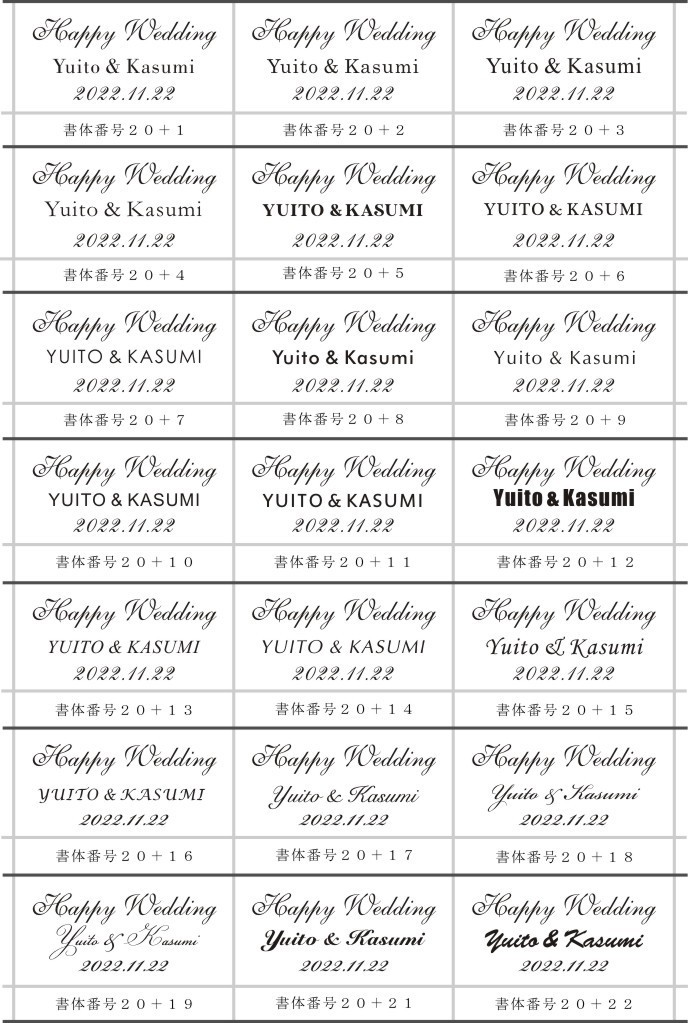 Happy Wedding
Yuito & Kasumi
2022.11.22
書体番号２０＋１
Happy Wedding
Yuito & Kasumi
2022.11.22
書体番号２０＋２
Happy Wedding
Yuito & Kasumi
2022.11.22
書体番号２０＋３
Happy Wedding
Yuito & Kasumi
2022.11.22
書体番号２０＋４
Happy Wedding
YUITO & KASUMI
2022.11.22
書体番号２０＋５
Happy Wedding
YUITO & KASUMI
2022.11.22
書体番号２０＋６
Happy Wedding
YUITO & KASUMI
2022.11.22
書体番号２０＋７
Happy Wedding
Yuito & Kasumi
2022.11.22
書体番号２０＋８
Happy Wedding
Yuito & Kasumi
2022.11.22
書体番号２０＋９
Happy Wedding
YUITO & KASUMI
2022.11.22
書体番号２０＋１０
Happy Wedding
YUITO & KASUMI
2022.11.22
書体番号２０＋１１
Happy Wedding
Yuito & Kasumi
2022.11.22
書体番号２０＋１２
Happy Wedding
YUITO & KASUMI
2022.11.22
書体番号２０＋１３
Happy Wedding
YUITO & KASUMI
2022.11.22
書体番号２０＋１４
Happy Wedding
Yuito & Kasumi
2022.11.22
書体番号２０＋１５
Happy Wedding
YUITO & KASUMI
2022.11.22
書体番号２０＋１６
Happy Wedding
Yuito & Kasumi
2022.11.22
書体番号２０＋１７
Happy Wedding
Yuito & Kasumi
2022.11.22
書体番号２０＋１８
Happy Wedding
Yuito & Kasumi
2022.11.22
書体番号２０＋１９
Happy Wedding
Yuito & Kasumi
2022.11.22
書体番号２０＋２１
Happy Wedding
Yuito & Kasumi
2022.11.22
書体番号２０＋２２